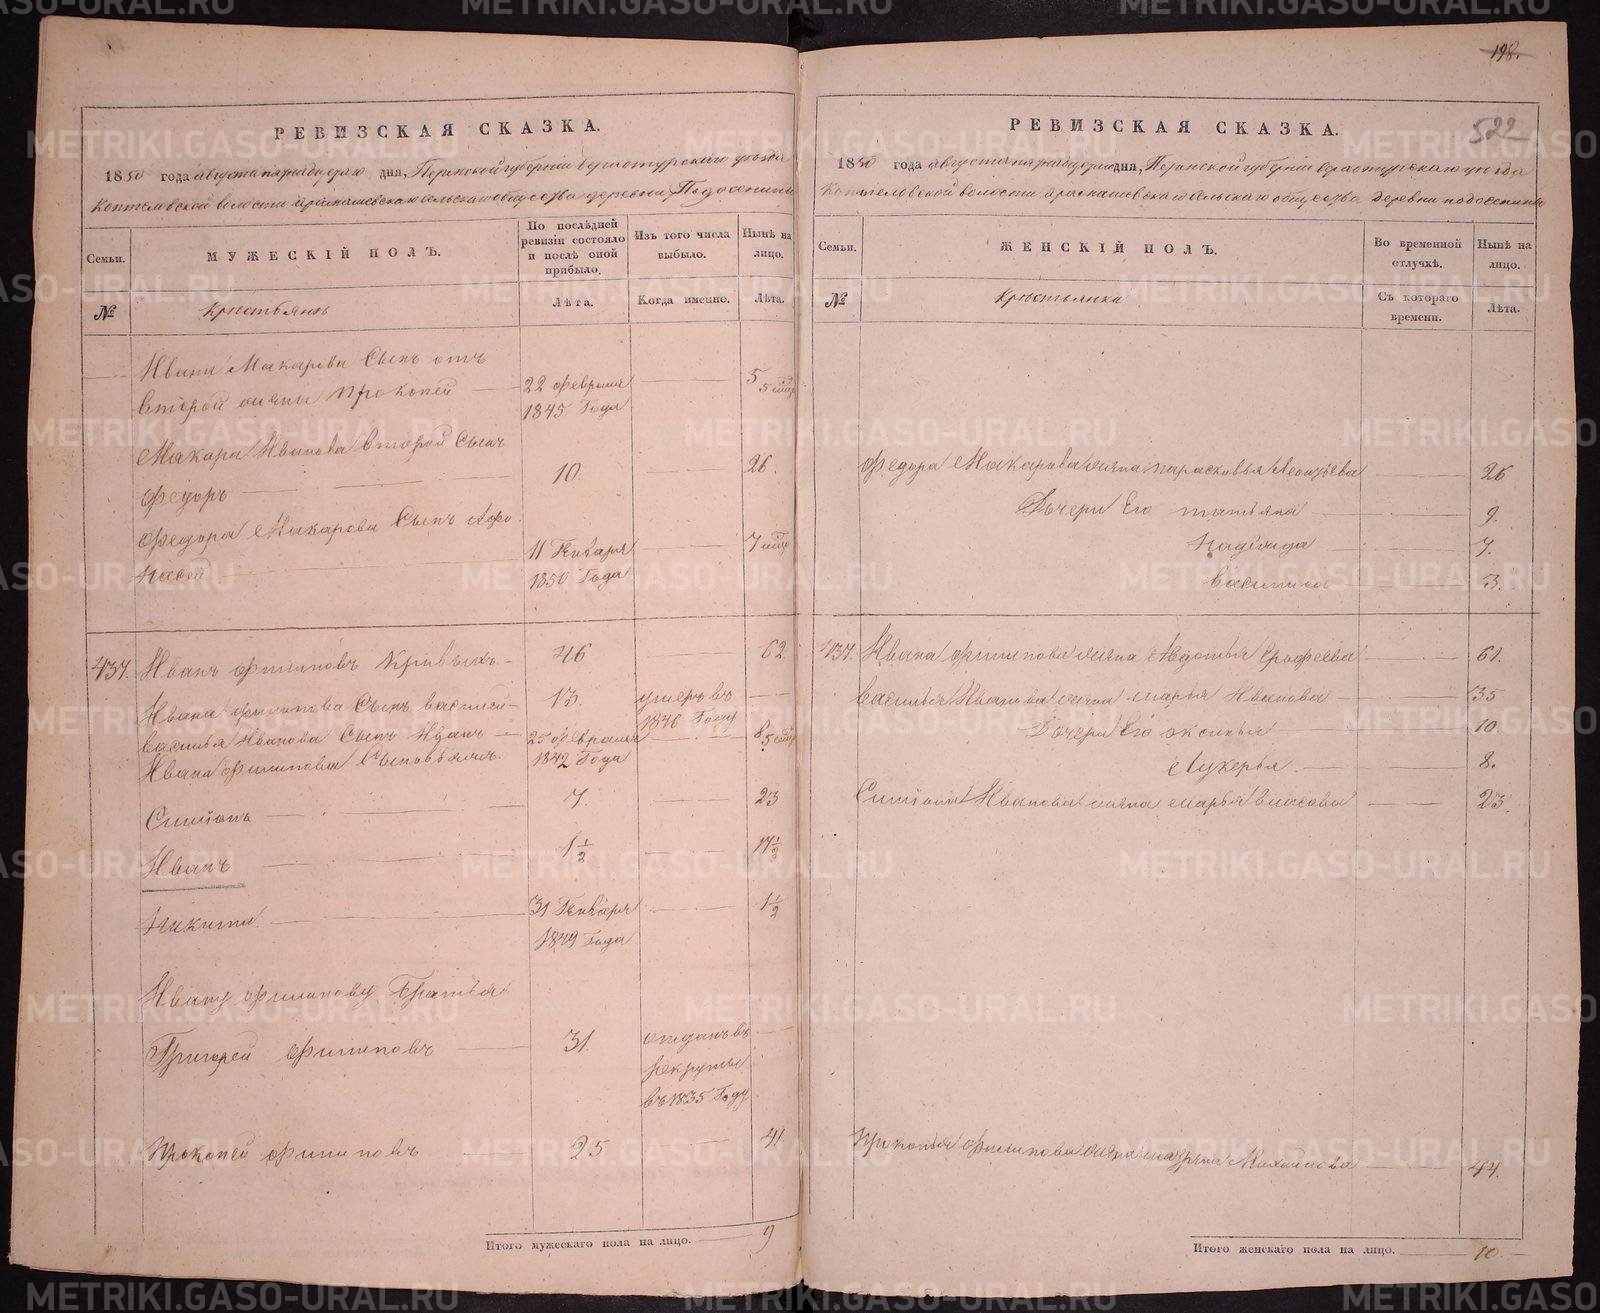 198.
522
РЕВИЗСКАЯ СКАЗКА.
1850 года августа пятнадцатаго дня, Пермской губернии верхотурскаго уезда
Коптеловской волости сельскаго общества деревни Подосенины
Семьи.
МУЖЕСКІЙ ПОЛЪ.
По послѣдней ревизіи состояло и послѣ оной прибыло,
Изъ того числа выбыло.
Нынѣ на лицо.
№
Крестьянъ
Лѣта.
Когда именно.
Лѣта.
Ивана Макарова Сынъ отъ
второй жены Прокопей 22 февраля 5 5 мѣс
1845 Года
Макара Иванова второй Сынъ
Федоръ 10. 26.
Федора Макарова Сынъ Афо
насей 11 Генваря 7 мѣс
1850 Года
437. Иванъ Филиповъ Кривыхъ 46 62
Ивана Филипова Сынъ василей 13. умеръ въ
1846 Году
василья Иванова Сынъ Иванъ 25 февраля 8 5 мѣс
1842 Года
Ивана Филипова Сыновьямъ.
Симіонъ 7. 23
Иванъ 1½ 17½
Никита. 31 Генваря 1½
1849 Года
Ивану Филипову Братья
Григорей Филиповъ 31 отданъ въ
рекруты
въ 1835 Году
Прокопей Филиповъ 25 41
Итого мужескаго пола на лицо. 9
РЕВИЗСКАЯ СКАЗКА.
1850 года августа пятнадцатаго дня, Пермской губерніи верхотурскаго уезда
Коптеловской волости сельскаго общества деревни подосенины
Семьи.
ЖЕНСКІЙ ПОЛЪ.
Во временной отлучкѣ.
Нынѣ на лицо.
№
Крестьянки
Съ котораго времени.
Лѣта.
Федора Макарова жена парасковья Леонтьева 26
Дочери Его татьяна 9.
Надежда 7.
василиса 3.
437. Ивана Филипова жена Авдотья Ерофеева 61.
василья Иванова жена марья Иванова 35
Дочери Его Аксинья 10.
Лукерья 8.
Симіона Иванова жена марья власова 23.
Прокопья Филипова жена Михайлова 44.
Итого женскаго пола на лицо. 10
METRIKI.GASO-URAL.RU